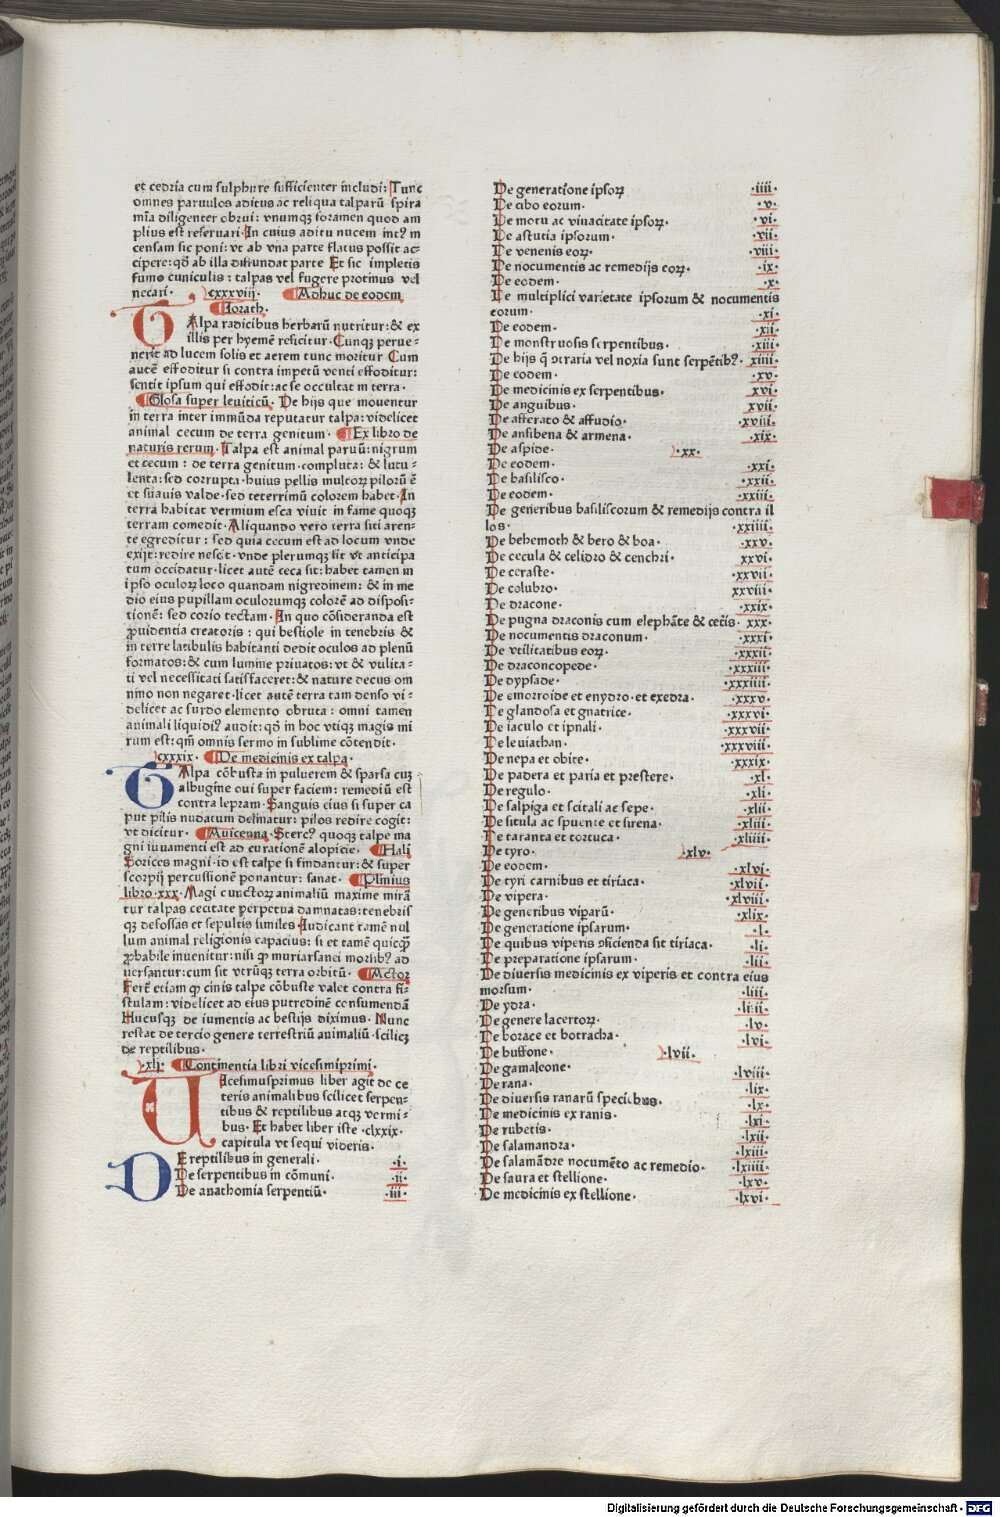 et cedria cum sulphure sufficienter includi: Tunc
omnes paruulos aditus ac reliqua talparū spira
mīa diligenter obrui: vnumqꝫ foramen quod am
plius est reseruari. In cuius aditu nucem intꝰ in
censam sic poni: vt ab vna parte flatus possit ac-
cipere: qđ ab illa diffundat parte Et sic impletis
fumo cuniculis: talpas vel fugere protinus vel
necari. cxxxviij. Adhuc de eodem
Iorath.
TAlpa radicibus herbarū nutritur: & ex
illis per hyemē reficitur. Cunqꝫ perue-
nerit ad lucem solis et aerem tunc moritur Cum
autē effoditur si contra impetū venti effoditur:
sentit ipsum qui effodit: ac se occultat in terra.
Glosa super leuiticū. De hijs que mouentur
in terra inter immūda reputatur talpa: videlicet
animal cecum de terra genitum. Ex libro de
naturis rerum. Talpa est animal paruū: nigrum
et cecum: de terra genitum. compluta: & lutu-
lenta: sed corrupta. huius pellis multoꝝ piloꝝ ē
et suauis valde. sed teterrimū colorem habet. In
terra habitat vermium esca viuit in fame quoqꝫ
terram comedit. Aliquando vero terra siti aren-
te egreditur: sed quia cecum est ad locum vnde
exijt: redire nescit. vnde plerumqꝫ fit vt anticipa
tum occidatur. licet autē ceca sit: habet tamen in
ipso oculoꝝ loco quandam nigredinem: & in me
dio eius pupillam oculorumqꝫ colorē ad disposi-
tionē: sed corio tectam. In quo cōsideranda est
ꝓuidentia creatoris: qui bestiole in tenebris &
in terre latibulis habitanti dedit oculos ad plenū
formatos: & cum lumine priuatos: vt & vtilita-
ti vel necessitati satisfaceret: & nature decus om
nino non negaret. licet autē terra tam denso vi-
delicet ac surdo elemento obruta: omni tamen
animali liquidiꝰ audit: qđ in hoc vtiqꝫ magis mi
rum est: qm̄ omnis sermo in sublime cōtendit.
cxxxix. De medicinis ex talpa.
TAlpa cōbusta in puluerem & sparsa cuꝫ
albugine oui super faciem: remediū est
contra lepram. Sanguis eius si super ca
put pilis nudatum delinatur: pilos redire cogit:
vt dicitur. Auicenna. Stercꝰ quoqꝫ talpe ma
gni iuuamenti est ad curationē alopicie. Hali
Sorices magni. id est talpe si findantur: & super
scorpij percussionē ponantur: sanat. Plinius
libro. xxx. Magi cunctoꝝ animaliū maxime mirā
tur talpas cecitate perpetua damnatas: tenebris
qꝫ defossas et sepultis similes Iudicant tamē nul
lum animal religionis capacius: si et tamē quicqꝫ
ꝓbabile inuenitur: nisi qꝫ muriarsani morsibꝰ ad
uersantur: cum sit vtrūqꝫ terra orbitū. Actor
Fert̄ etiam qꝫ cinis talpe cōbuste valet contra fi-
stulam: videlicet ad eius putredinē consumendā
Hucusqꝫ de iumentis ac bestijs diximus. Nunc
restat de tercio genere terrestriū animaliū. scilicꝫ
de reptilibus.
.xlj. Continentia libri vicesimiprimi.
UIcesimusprimus liber agit de ce
teris animalibus scilicet serpen-
tibus & reptilibus atqꝫ vermi-
bus. Et habet liber iste .clxxix.
capitula vt sequi videris.
DE reptilibus in generali. .i.
De serpentibus in cōmuni. .ii.
De anathomia serpentiū. .iii.
De generatione ipsoꝝ .iiii.
De cibo eorum. .v.
De motu ac viuacitate ipsoꝝ. .vi.
De astutia ipsorum. .vii.
De venenis eoꝝ. .viii.
De nocumentis ac remedijs eoꝝ. .ix.
De eodem. .x.
De multiplici varietate ipsorum & nocumentis
eorum. .xi.
De eodem. .xii.
De monstruosis serpentibus. .xiii.
De hijs q̄ ɔtraria vel noxia sunt serpētibꝰ. xiiii.
De eodem. .xv.
De medicinis ex serpentibus. .xvi.
De anguibus. .xvii.
De afferato & affudio. .xviii.
De ansibena & armena. .xix.
De aspide. .xx.
De eodem. .xxi.
De basilisco. .xxii.
De eodem. .xxiii.
De generibus basiliscorum & remedijs contra il
los. .xxiiii.
De behemoth & bero & boa. .xxv.
De cecula & celidro & cenchri. xxvi.
De ceraste. .xxvii.
De colubro. xxviii.
De dracone. .xxix.
De pugna draconis cum elephāte & cet̄is. xxx.
De nocumentis draconum. .xxxi.
De vtilitatibus eoꝝ. .xxxii.
De draconcopede. .xxxiii.
De dypsade. .xxxiiii.
De emorroide et enydro. et exedra. .xxxv.
De glandosa et gnatrice. .xxxvi.
De iaculo et ipnali. .xxxvii.
De leuiathan. .xxxviii.
De nepa et obice. .xxxix.
De padera et paria et prestere. .xl.
De regulo. .xli.
De salpiga et scitali ac sepe. .xlii.
De situla ac spuente et sirena. .xliii.
De taranta et tortuca. .xliiii.
De tyro. .xlv.
De eodem. .xlvi.
De tyri carnibus et tiriaca. .xlvii.
De vipera. .xlviii.
De generibus viparū. .xlix.
De generatione ipsarum. .l.
De quibus viperis ɔficienda sit tiriaca. .li.
De preparatione ipsarum. .lii.
De diuersis medicinis ex viperis et contra eius
morsum. .liii.
De ydra. .liiii.
De genere lacertoꝝ. .lv.
De borace et botracha. .lvi.
De buffone. .lvii.
De gamaleone. .lviii.
De rana. .lix.
De diuersis ranarū speciebus. .lx.
De medicinis ex ranis. .lxi.
De rubetis. .lxii.
De salamandra. .lxiii.
De salamādre nocumēto ac remedio. .lxiiii.
De saura et stellione. .lxv.
De medicinis ex stellione. .lxvi.
Digitalisierung gefördert durch die Deutsche Forschungsgemeinschaft - DFG